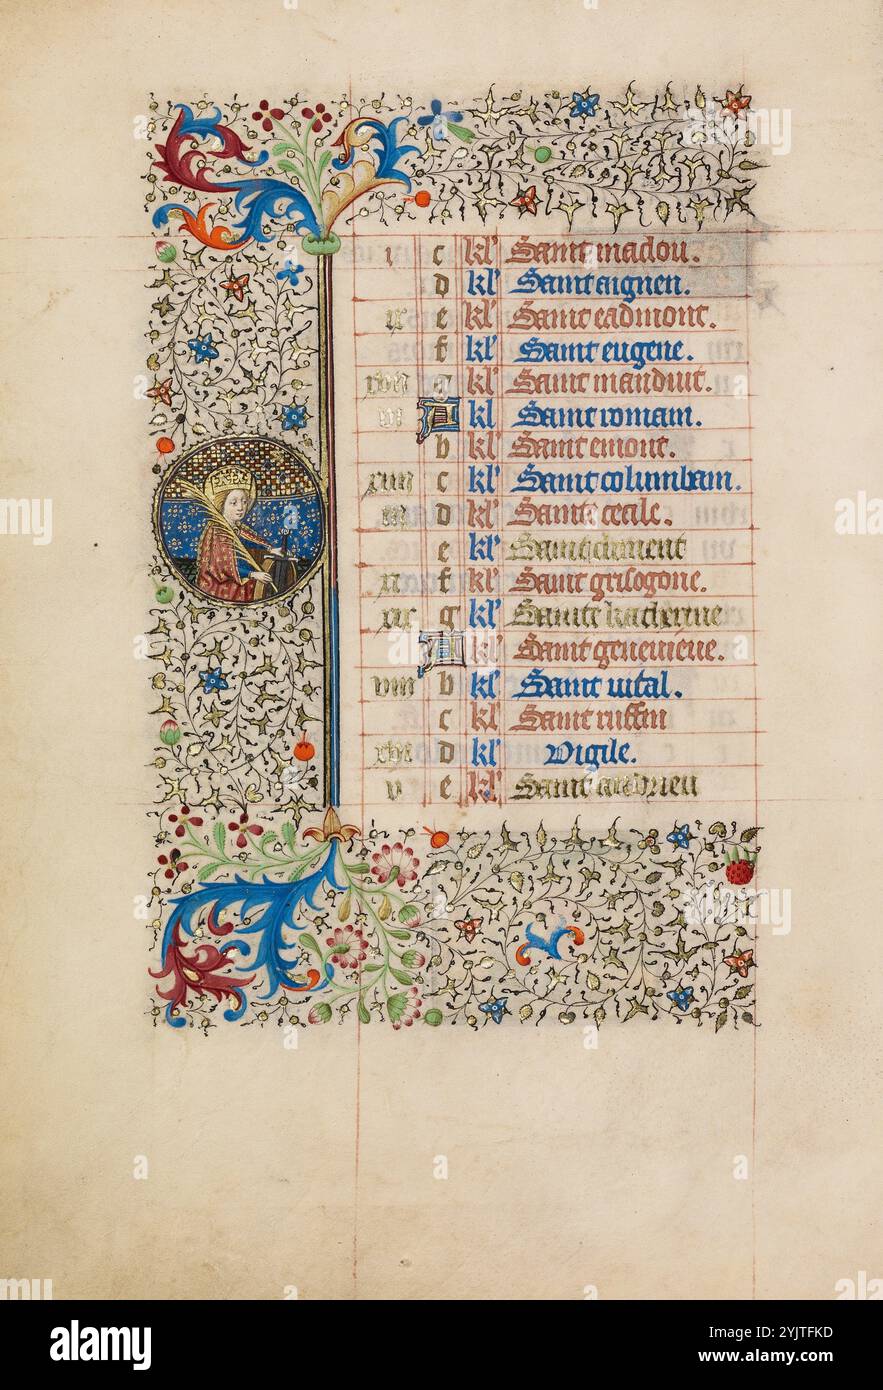 i c kl' Saint maclou.
d kl' Saint aignen.
ix e kl' Saint eadmont.
f kl' Saint eugene.
xvii g kl' Saint manduit.
vi A kl Saint romain.
b kl' Saint emont.
xiiii c kl' Saint columbam.
iii d kl' Sainte cecile.
e kl' Saint clement
xi f kl' Saint grisogone.
xix g kl' Sainte katherine
A kl' Saint genevieve.
viii b kl' Saint vital.
c kl' Saint ruffin
xvi d kl' Vigile.
v e kl' Saint andrieu
alamy
Image ID: 2YJTFKD
www.alamy.com